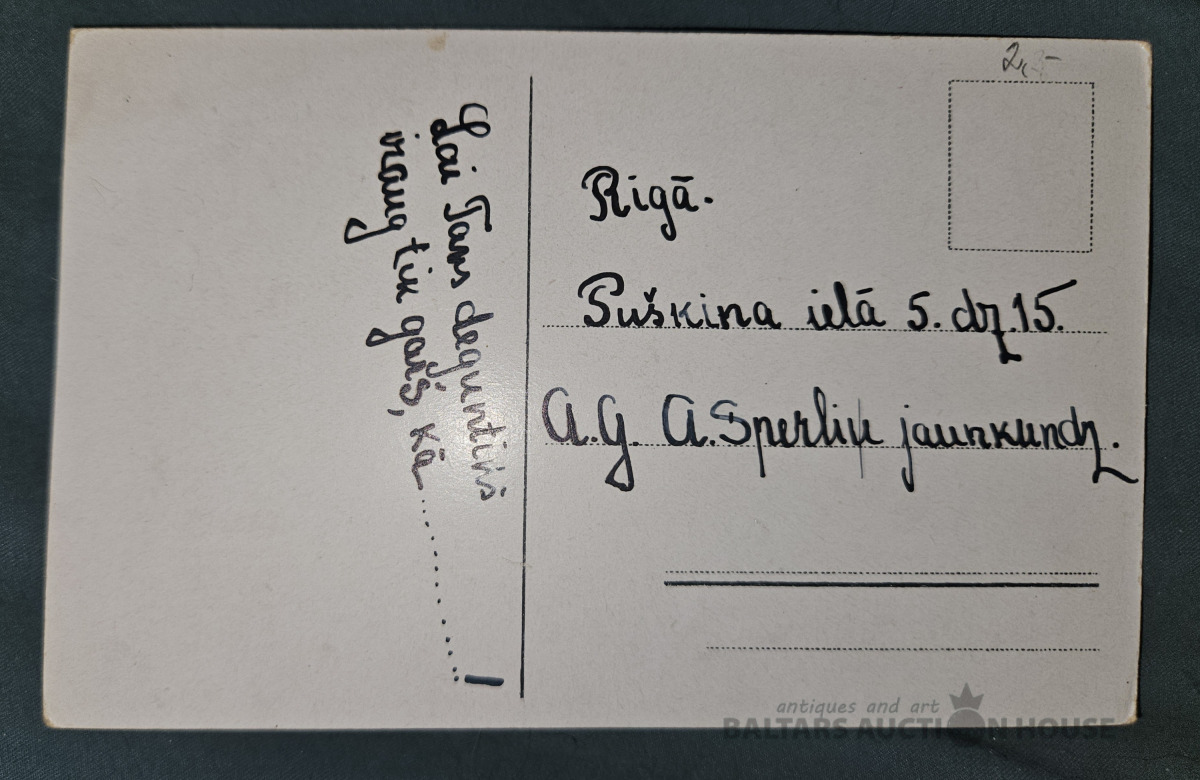 Lai Tavs deguntiņš
vraug tik gaiš, kā ..........!
2,
Rigā.
Puškina ielā 5. dz. 15.
A.G. A. Sperliņ jaunkundz.
antiques and art
BALTARS AUCTION HOUSE